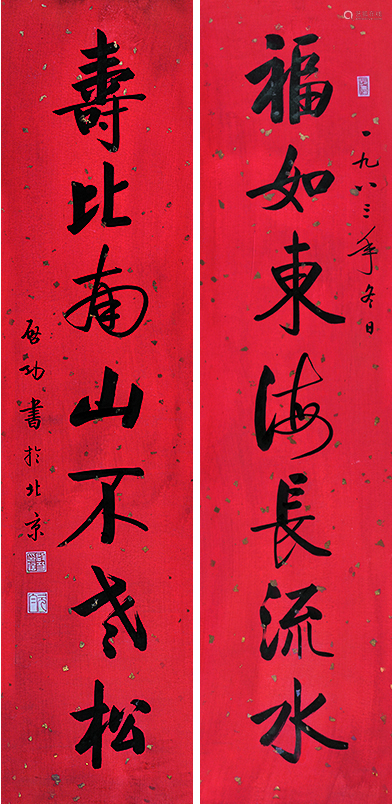 福如東海長流水
一九八三年冬日
壽比南山不老松
啟功書於北京